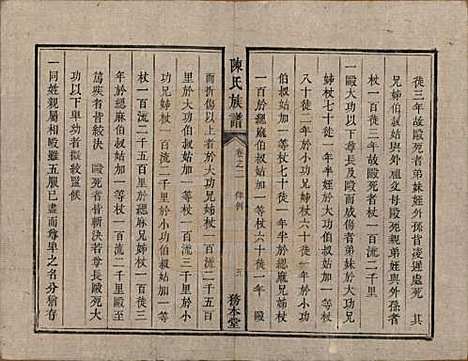 徒三年故毆死者弟妹姪外孫皆凌遲處死 其
伯叔姑與外祖父母毆死親弟姪與外孫者
杖一百徒三年故毆死者杖一百流二千里
一毆大功以下尊長及毆而威傷者弟妹於大功
兄姊杖七十徒一年半姪於大功伯叔姑杖
八十徒二年於小功兄姊杖六十徒一年於小功
伯叔姑加一等杖七十徒一年半於緦麻兄姊杖
一百於緦麻伯叔姑加一等杖六十徒一年 毆
陳氏族譜
卷之一 律例
五
務本堂
而折傷以上者於大功兄姊杖一百流二千五百
里於大功伯叔姑加一等杖一百流三千里於小
功兄姊杖一百流二千里於小功伯叔姑加一等
杖一百流二千五百里於緦麻兄姊杖一百徒三
年於緦麻伯叔姑加一等杖一百流二千里毆至
篤疾者皆絞決 毆死者皆斬決者尊長毆死大
功以下卑幼者皆絞
一同姓親屬相毆雖五服已盡而尊卑之名分猶存